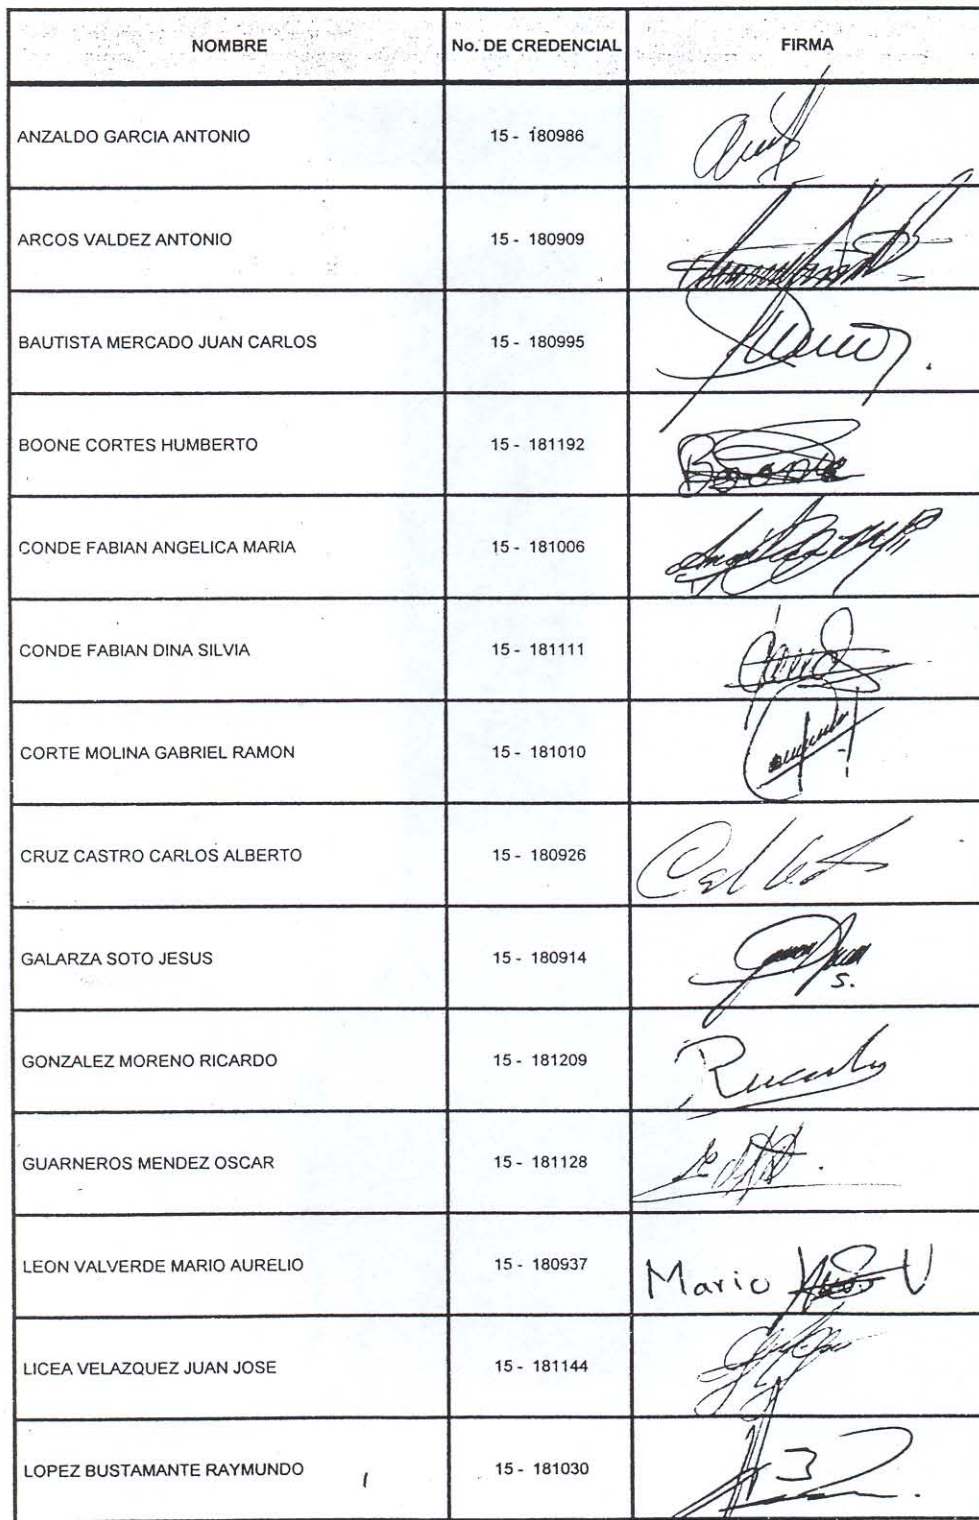 NOMBRE No. DE CREDENCIAL FIRMA
ANZALDO GARCIA ANTONIO 15 - 180986
ARCOS VALDEZ ANTONIO 15 - 180909
BAUTISTA MERCADO JUAN CARLOS 15 - 180995
BOONE CORTES HUMBERTO 15 - 181192 Boone
CONDE FABIAN ANGELICA MARIA 15 - 181006
CONDE FABIAN DINA SILVIA 15 - 181111
CORTE MOLINA GABRIEL RAMON 15 - 181010
CRUZ CASTRO CARLOS ALBERTO 15 - 180926
GALARZA SOTO JESUS 15 - 180914 S.
GONZALEZ MORENO RICARDO 15 - 181209 Ricardo
GUARNEROS MENDEZ OSCAR 15 - 181128
LEON VALVERDE MARIO AURELIO 15 - 180937 Mario V
LICEA VELAZQUEZ JUAN JOSE 15 - 181144
LOPEZ BUSTAMANTE RAYMUNDO 15 - 181030